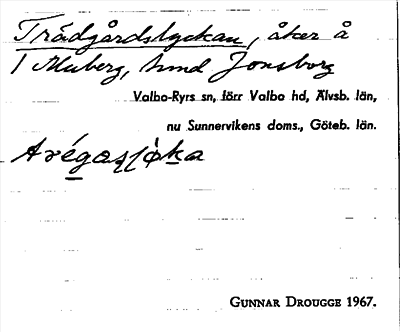 Trädgårdslyckan, åker å
1 Muberg, hmd Jonsborg
Valbo-Ryrs sn, förr Valbo hd, Älvsb. län,
nu Sunnervikens doms., Göteb. län.
GUNNAR DROUGGE 1967.